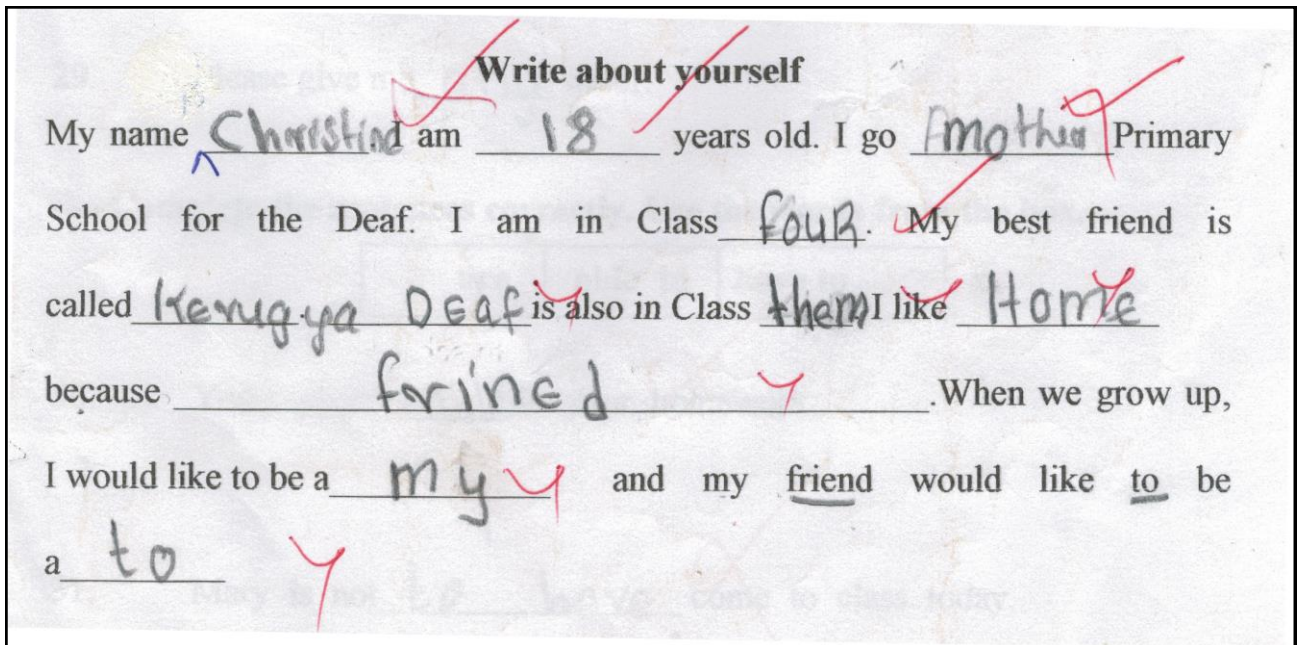 Write about yourself
My name Christine I am 18 years old. I go mother Primary
School for the Deaf. I am in Class four. My best friend is
called Kerugya Deaf is also in Class them I like Home
because frined .When we grow up,
I would like to be a my and my friend would like to be
a to